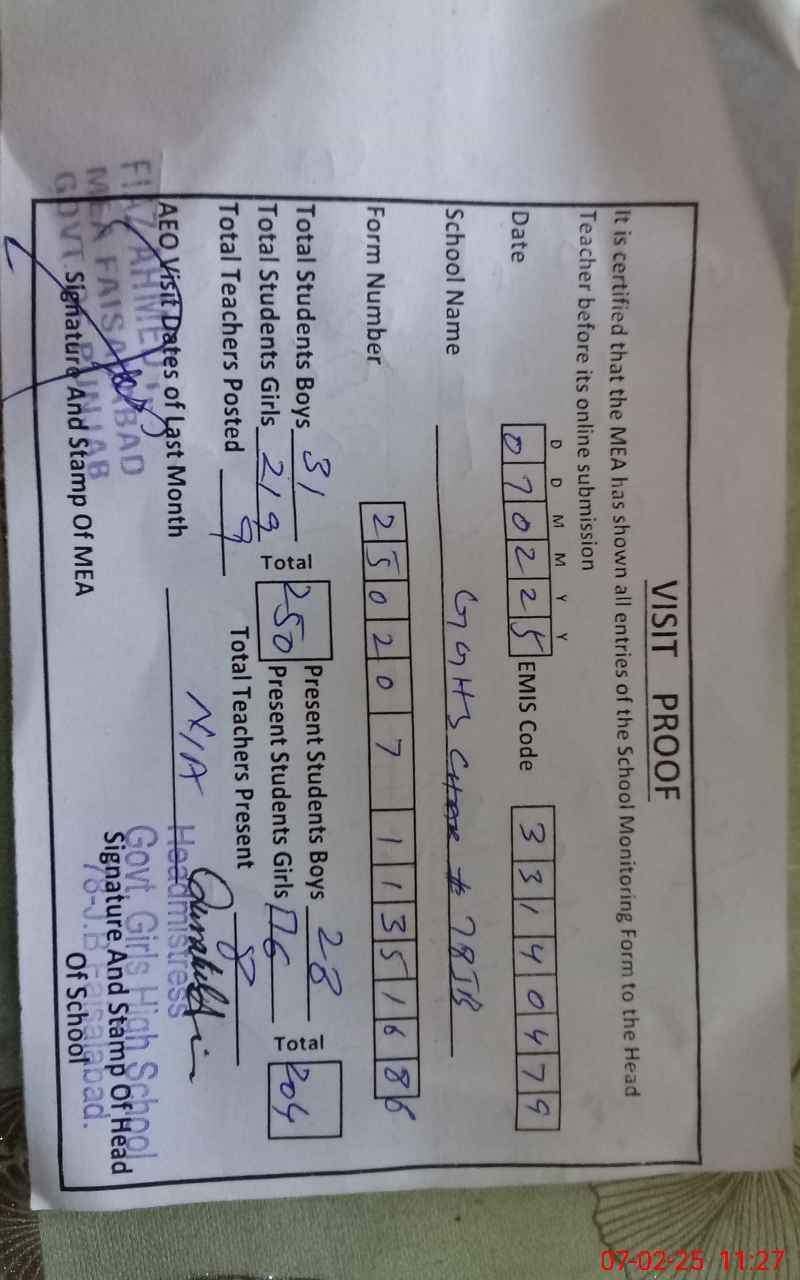 VISIT PROOF
It is certified that the MEA has shown all entries of the School Monitoring Form to the Head
Teacher before its online submission
D D M M Y Y
Date 070225 EMIS Code 33140479
School Name GGHS Chak # 78JB
Form Number 2502071135168
Total Students Boys 31 Present Students Boys 28
Total Students Girls 219 Total 250 Present Students Girls 176 Total 204
Total Teachers Posted 9 Total Teachers Present 8
AEO Visit Dates of Last Month N/A
FIAZ AHMED
MEA FAISALABAD
GOVT. OF PUNJAB
Signature And Stamp Of MEA
Headmistress
Govt. Girls High School
78-J.B Faisalabad.
Signature And Stamp Of Head
Of School
07-02-25 11:27